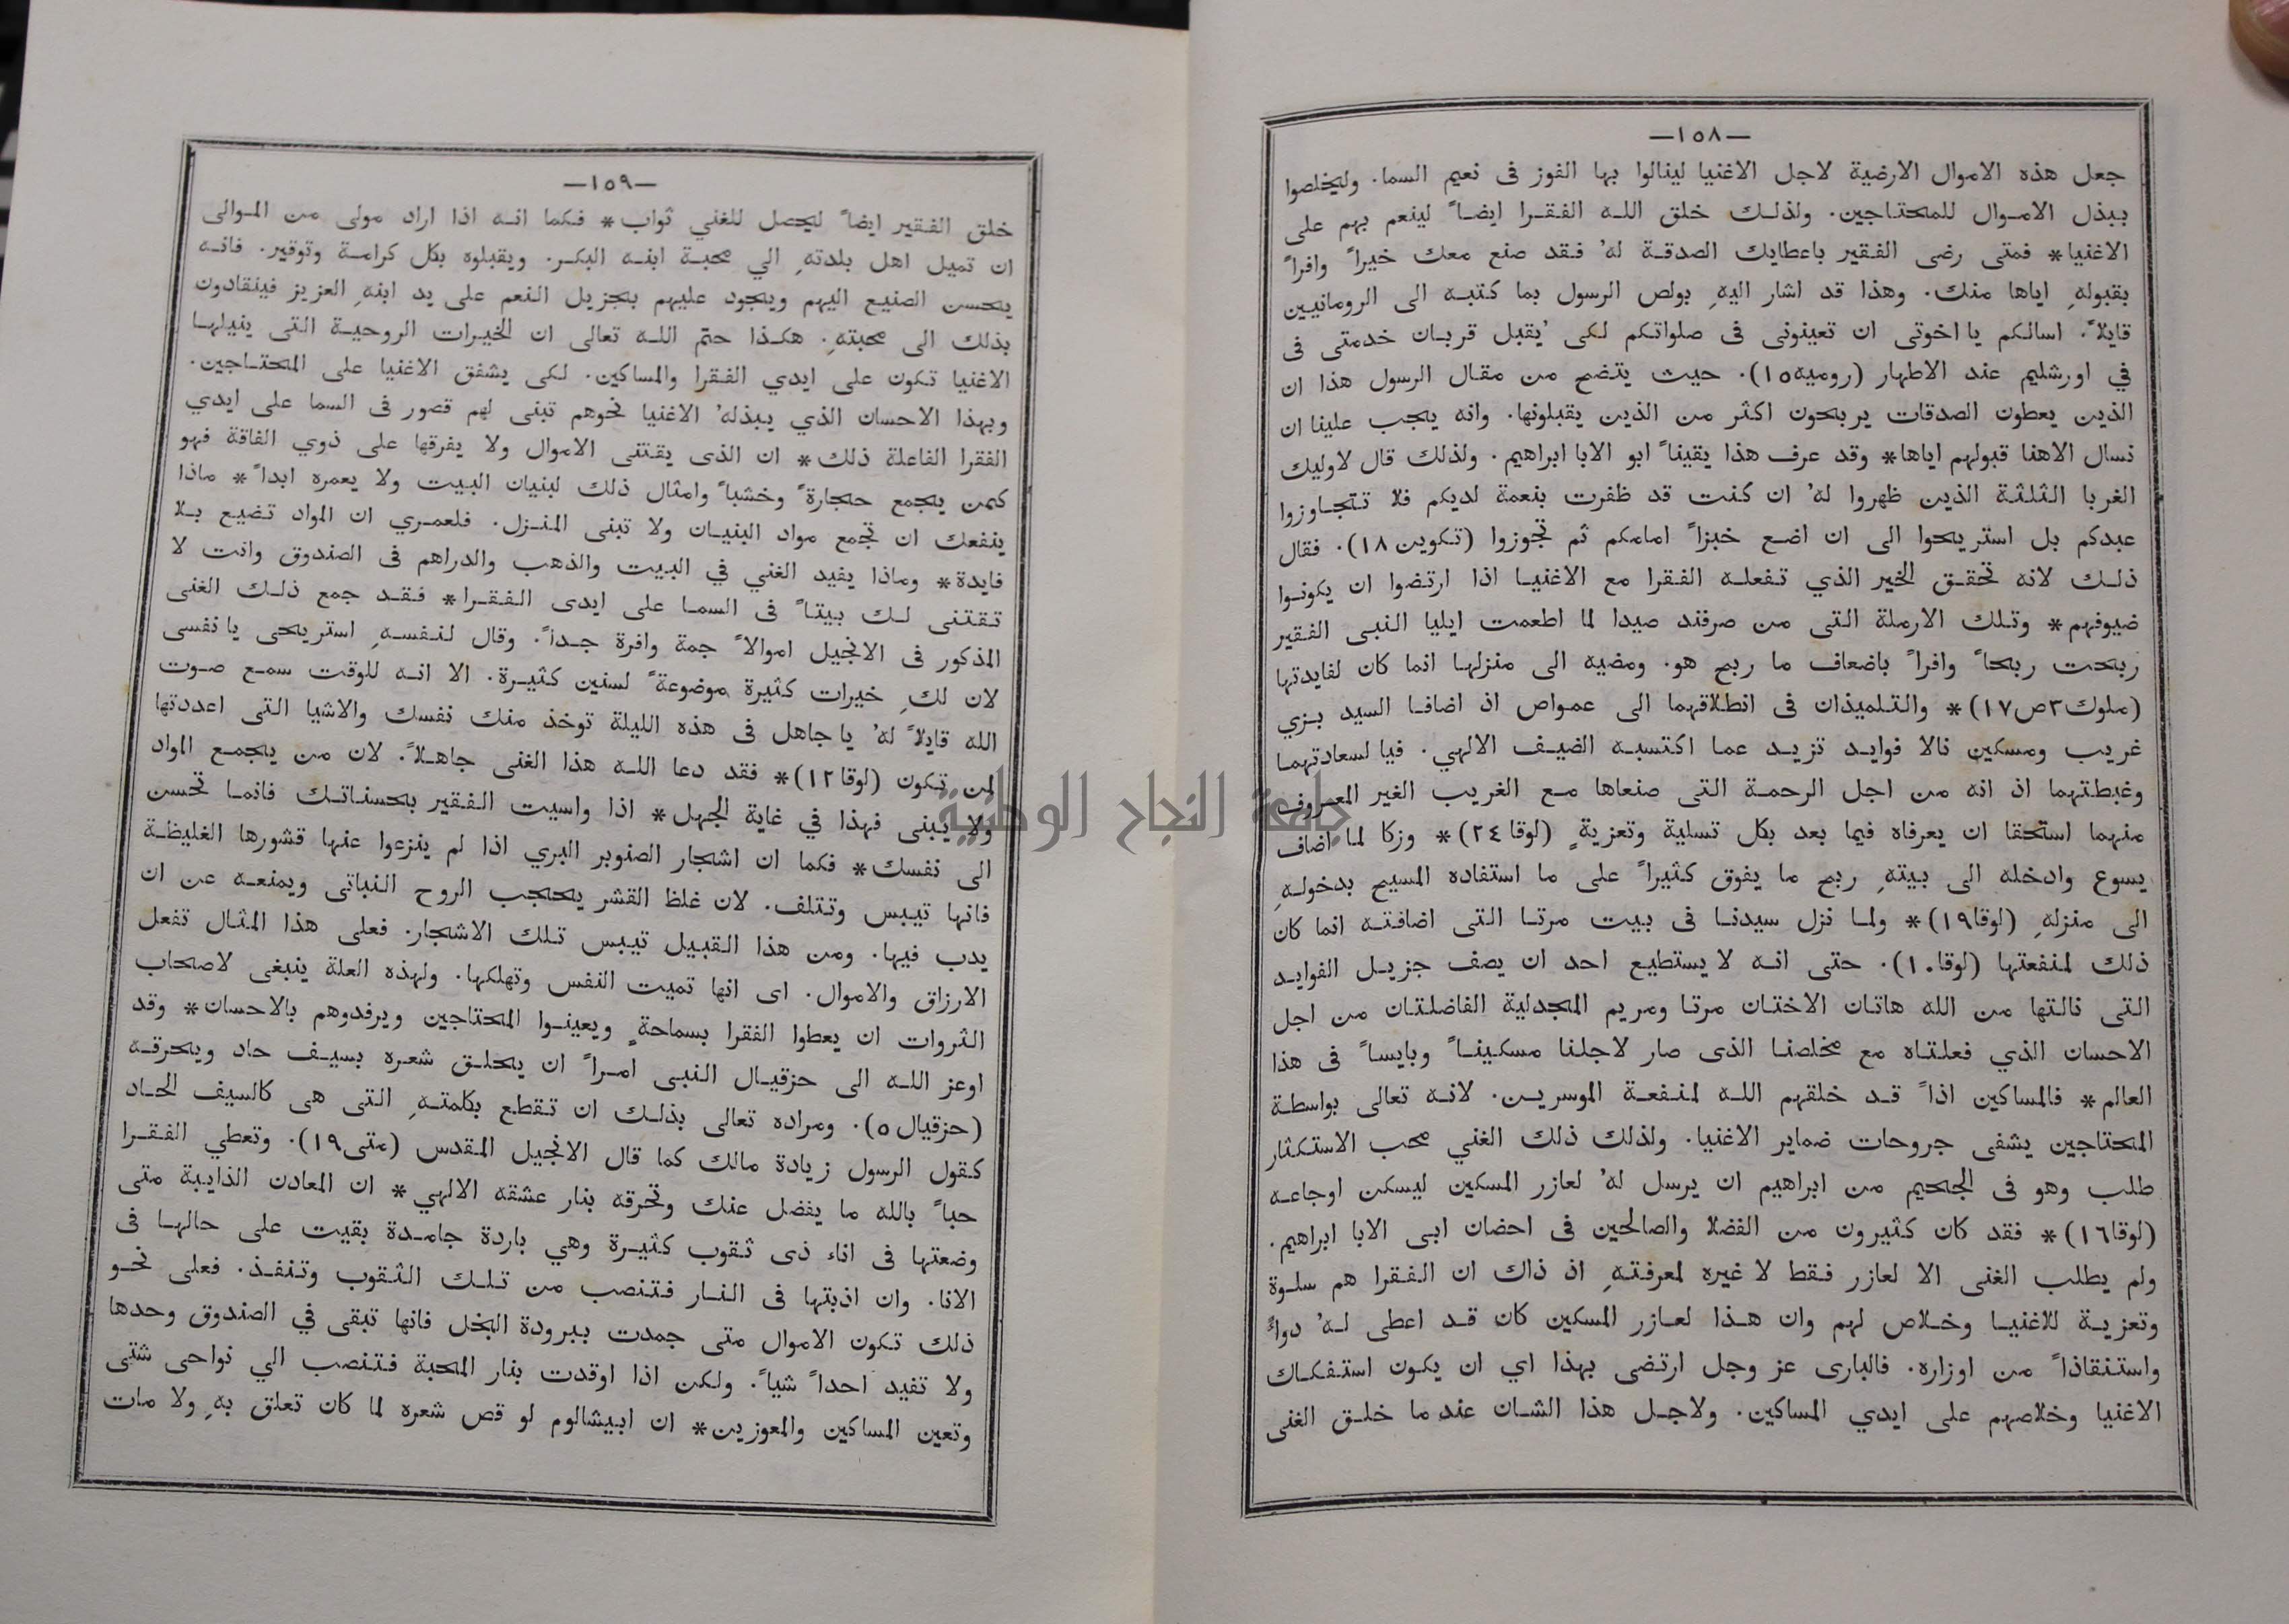 —١٥٨—
جعل هذه الاموال الارضية لاجل الاغنيا لينالوا بها الفوز فى نعيم السما. وليخلصوا
ببذل الاموال للمحتاجين. ولذلك خلق الله الفقرا ايضاً لينعم بهم على
الاغنيا* فمتى رضى الفقير باعطايك الصدقة لهُ فقد صنع معك خيراً وافراً
بقبولهِ اياها منك. وهذا قد اشار اليهِ بولص الرسول بما كتبه الى الرومانيين
قايلاً. اسالكم يا اخوتى ان تعينونى فى صلواتكم لكى يُقبل قربان خدمتى فى
في اورشليم عند الاطهار (رومية١٥). حيث يتضح من مقال الرسول هذا ان
الذين يعطون الصدقات يربحون اكثر من الذين يقبلونها. وانه يجب علينا ان
نسال الاهنا قبولهم اياها* وقد عرف هذا يقيناً ابو الابا ابراهيم. ولذلك قال لاوليك
الغربا الثلثة الذين ظهروا لهُ ان كنت قد ظفرت بنعمة لديكم فلا تتجاوزوا
عبدكم بل استريحوا الى ان اضع خبزاً امامكم ثم تجوزوا (تكوين١٨). فقال
ذلك لانه تحقق الخير الذي تفعله الفقرا مع الاغنيا اذا ارتضوا ان يكونوا
ضيوفهم* وتلك الارملة التى من صرفند صيدا لما اطعمت ايليا النبى الفقير
ربحت ربحاً وافراً باضعاف ما ربح هو. ومضيه الى منزلها انما كان لفايدتها
(ملوك٣ص١٧)* والتلميذان فى انطلاقهما الى عمواص اذ اضافا السيد بزي
غريب ومسكين نالا فوايد تزيد عما اكتسبه الضيف الالهي. فيا لسعادتهما
وغبطتهما اذ انه من اجل الرحمة التى صنعاها مع الغريب الغير المعروف
منهما استحقا ان يعرفاه فيما بعد بكل تسلية وتعزيةٍ (لوقا٢٤)* وزكا لما اضاف
يسوع وادخله الى بيتهِ ربح ما يفوق كثيراً على ما استفاده المسيح بدخولهِ
الى منزلهِ (لوقا١٩)* ولما نزل سيدنا فى بيت مرتا التى اضافته انما كان
ذلك لمنفعتها (لوقا١٠). حتى انه لا يستطيع احد ان يصف جزيل الفوايد
التى نالتها من الله هاتان الاختان مرتا ومريم المجدلية الفاضلتان من اجل
الاحسان الذي فعلتاه مع مخلصنا الذى صار لاجلنا مسكيناً وبايساً فى هذا
العالم* فالمساكين اذاً قد خلقهم الله لمنفعة الموسرين. لانه تعالى بواسطة
المحتاجين يشفى جروحات ضماير الاغنيا. ولذلك ذلك الغني محب الاستكثار
طلب وهو فى الجحيم من ابراهيم ان يرسل لهُ لعازر المسكين ليسكن اوجاعه
(لوقا١٦)* فقد كان كثيرون من الفضلا والصالحين فى احضان ابى الابا ابراهيم.
ولم يطلب الغنى الا لعازر فقط لا غيره لمعرفتهِ اذ ذاك ان الفقرا هم سلوة
وتعزية للاغنيا وخلاص لهم وان هذا لعازر المسكين كان قد اعطى لهُ دواءً
واستنقاذاً من اوزاره. فالبارى عز وجل ارتضى بهذا اي ان يكون استفكاك
الاغنيا وخلاصهم على ايدي المساكين. ولاجل هذا الشان عند ما خلق الغنى
—١٥٩—
خلق الفقير ايضاً ليحصل للغني ثواب* فكما انه اذا اراد مولى من الموالى
ان تميل اهل بلدتهِ الي محبة ابنه البكر. ويقبلوه بكل كرامة وتوقير. فانه
يحسن الصنيع اليهم ويجود عليهم بجزيل النعم على يد ابنهِ العزيز فينقادون
بذلك الى محبتهِ. هكذا حتم الله تعالى ان الخيرات الروحية التى ينيلها
الاغنيا تكون على ايدي الفقرا والمساكين. لكى يشفق الاغنيا على المحتاجين.
وبهذا الاحسان الذي يبذلهُ الاغنيا نحوهم تبنى لهم قصور فى السما على ايدي
الفقرا الفاعلة ذلك* ان الذى يقتنى الاموال ولا يفرقها على ذوي الفاقة فهو
كمن يجمع حجارةً وخشباً وامثال ذلك لبنيان البيت ولا يعمره ابداً* ماذا
ينفعك ان تجمع مواد البنيان ولا تبنى المنزل. فلعمري ان المواد تضيع بلا
فايدة* وماذا يفيد الغني في البيت والذهب والدراهم فى الصندوق وانت لا
تقتنى لك بيتاً فى السما على ايدى الفقرا* فقد جمع ذلك الغنى
المذكور فى الانجيل اموالاً جمة وافرة جداً. وقال لنفسهِ استريحى يا نفسى
لان لكِ خيرات كثيرة موضوعةً لسنين كثيرة. الا انه للوقت سمع صوت
الله قايلاً لهُ يا جاهل فى هذه الليلة توخذ منك نفسك والاشيا التى اعددتها
لمن تكون (لوقا١٢)* فقد دعا الله هذا الغنى جاهلاً. لان من يجمع المواد
ولا يبنى فهذا في غاية الجهل* اذا واسيت الفقير بحسناتك فانما تحسن
الى نفسك* فكما ان اشجار الصنوبر البري اذا لم ينزعوا عنها قشورها الغليظة
فانها تيبس وتتلف. لان غلظ القشر يحجب الروح النباتى ويمنعه عن ان
يدب فيها. ومن هذا القبيل تيبس تلك الاشجار. فعلى هذا المثال تفعل
الارزاق والاموال. اى انها تميت النفس وتهلكها. ولهذه العلة ينبغى لاصحاب
الثروات ان يعطوا الفقرا بسماحةٍ ويعينوا المحتاجين ويرفدوهم بالاحسان* وقد
اوعز الله الى حزقيال النبى امراً ان يحلق شعره بسيف حاد ويحرقه
(حزقيال٥). ومراده تعالى بذلك ان تقطع بكلمتهِ التى هى كالسيف الحاد
كقول الرسول زيادة مالك كما قال الانجيل المقدس (متى١٩). وتعطي الفقرا
حباً بالله ما يفضل عنك وتحرقه بنار عشقه الالهي* ان المعادن الذايبة متى
وضعتها فى اناء ذى ثقوب كثيرة وهي باردة جامدة بقيت على حالها فى
الانا. وان اذبتها فى النار فتنصب من تلك الثقوب وتنفذ. فعلى نحو
ذلك تكون الاموال متى جمدت ببرودة البخل فانها تبقى في الصندوق وحدها
ولا تفيد احداً شياً. ولكن اذا اوقدت بنار المحبة فتنصب الي نواحى شتى
وتعين المساكين والمعوزين* ان ابيشالوم لو قص شعره لما كان تعلق بهِ ولا مات
جامعة النجاح الوطنية